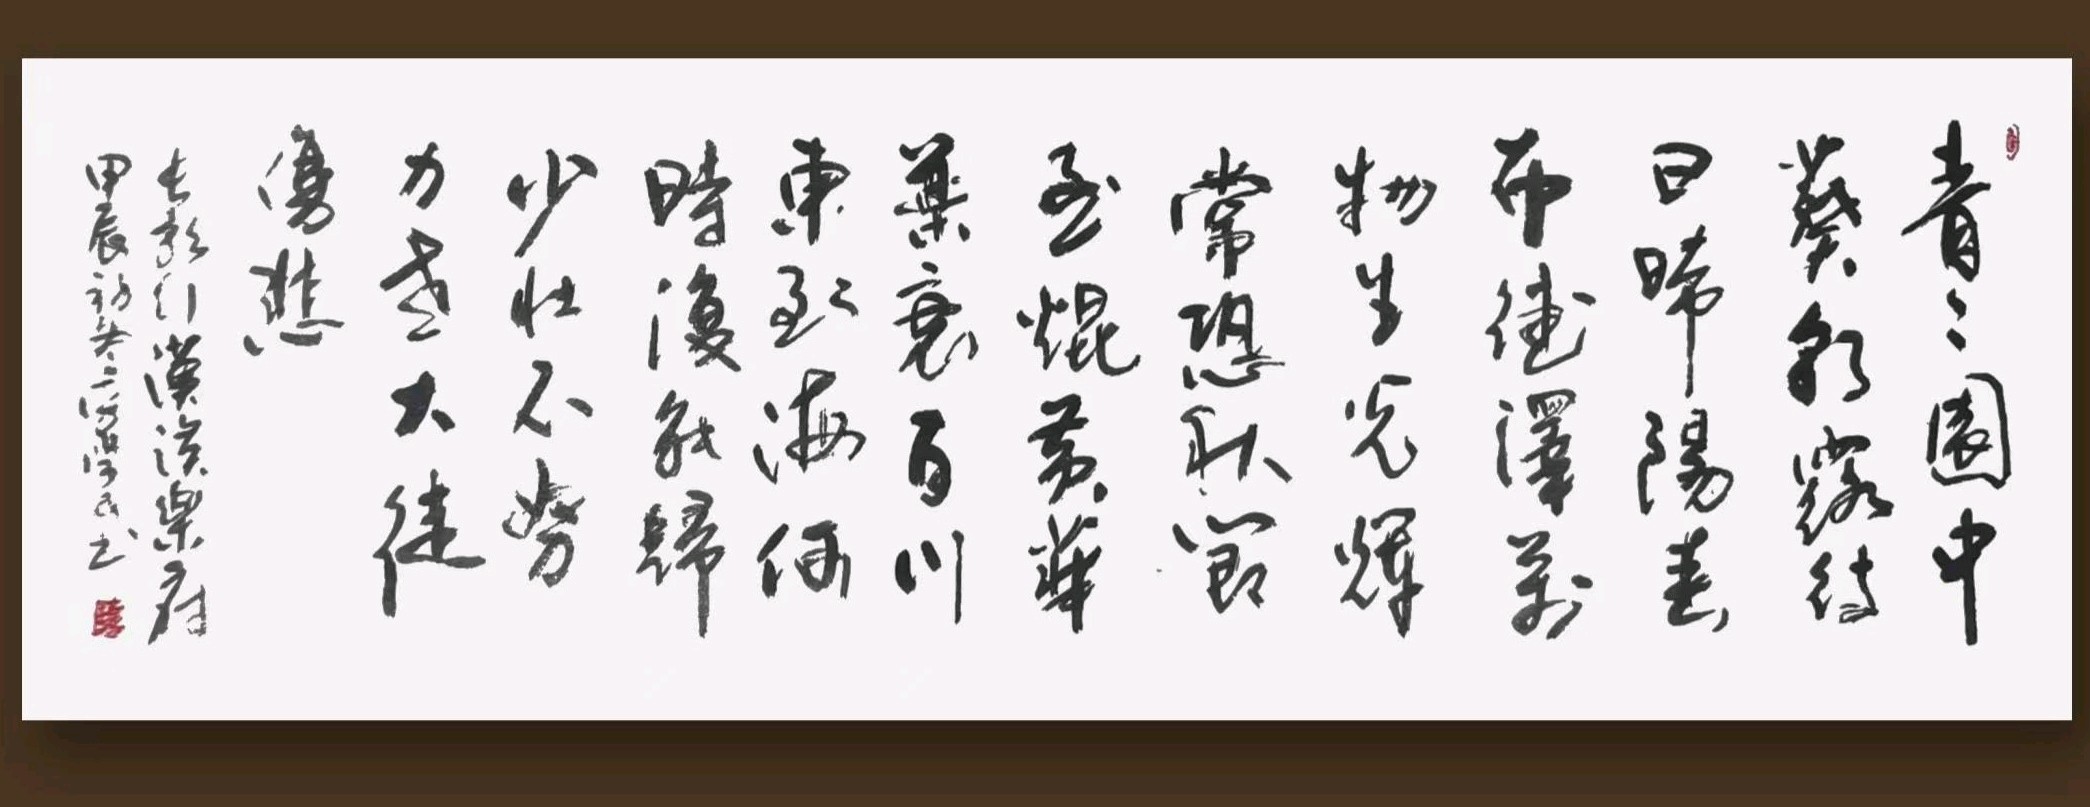 青々園中
葵朝露待
日晞陽春
布德澤萬
物生光輝
常恐秋節
至焜黃華
葉衰百川
東到海何
時復能歸
少壯不努
力老大徒
傷悲
長歌行漢漢樂府
甲辰初冬
書